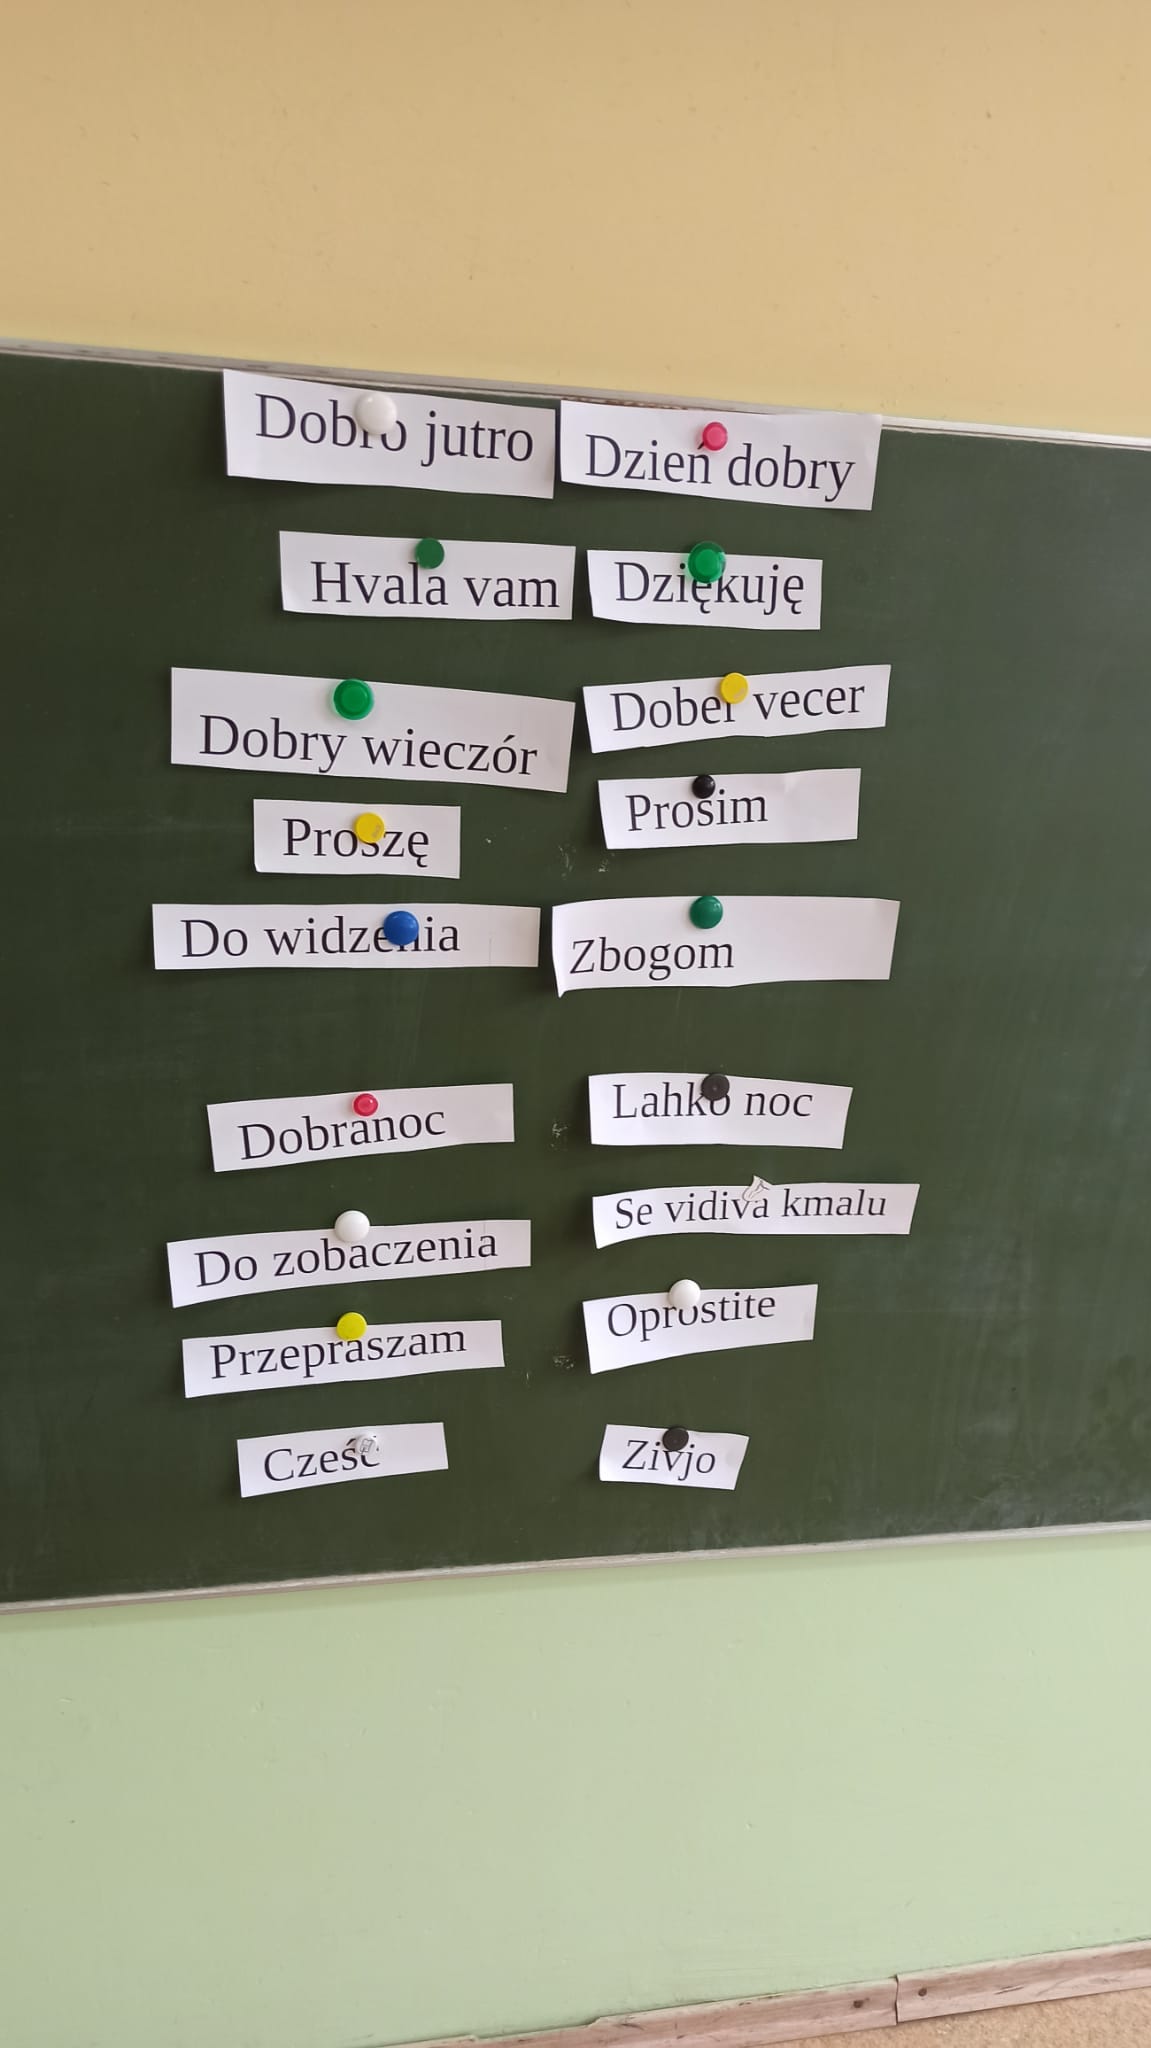 Dobro jutro
Dzień dobry
Hvala vam
Dziękuję
Dobry wieczór
Dober vecer
Proszę
Prosim
Do widzenia
Zbogom
Dobranoc
Lahko noc
Do zobaczenia
Se vidiva kmalu
Przepraszam
Oprostite
Cześć
Zivjo